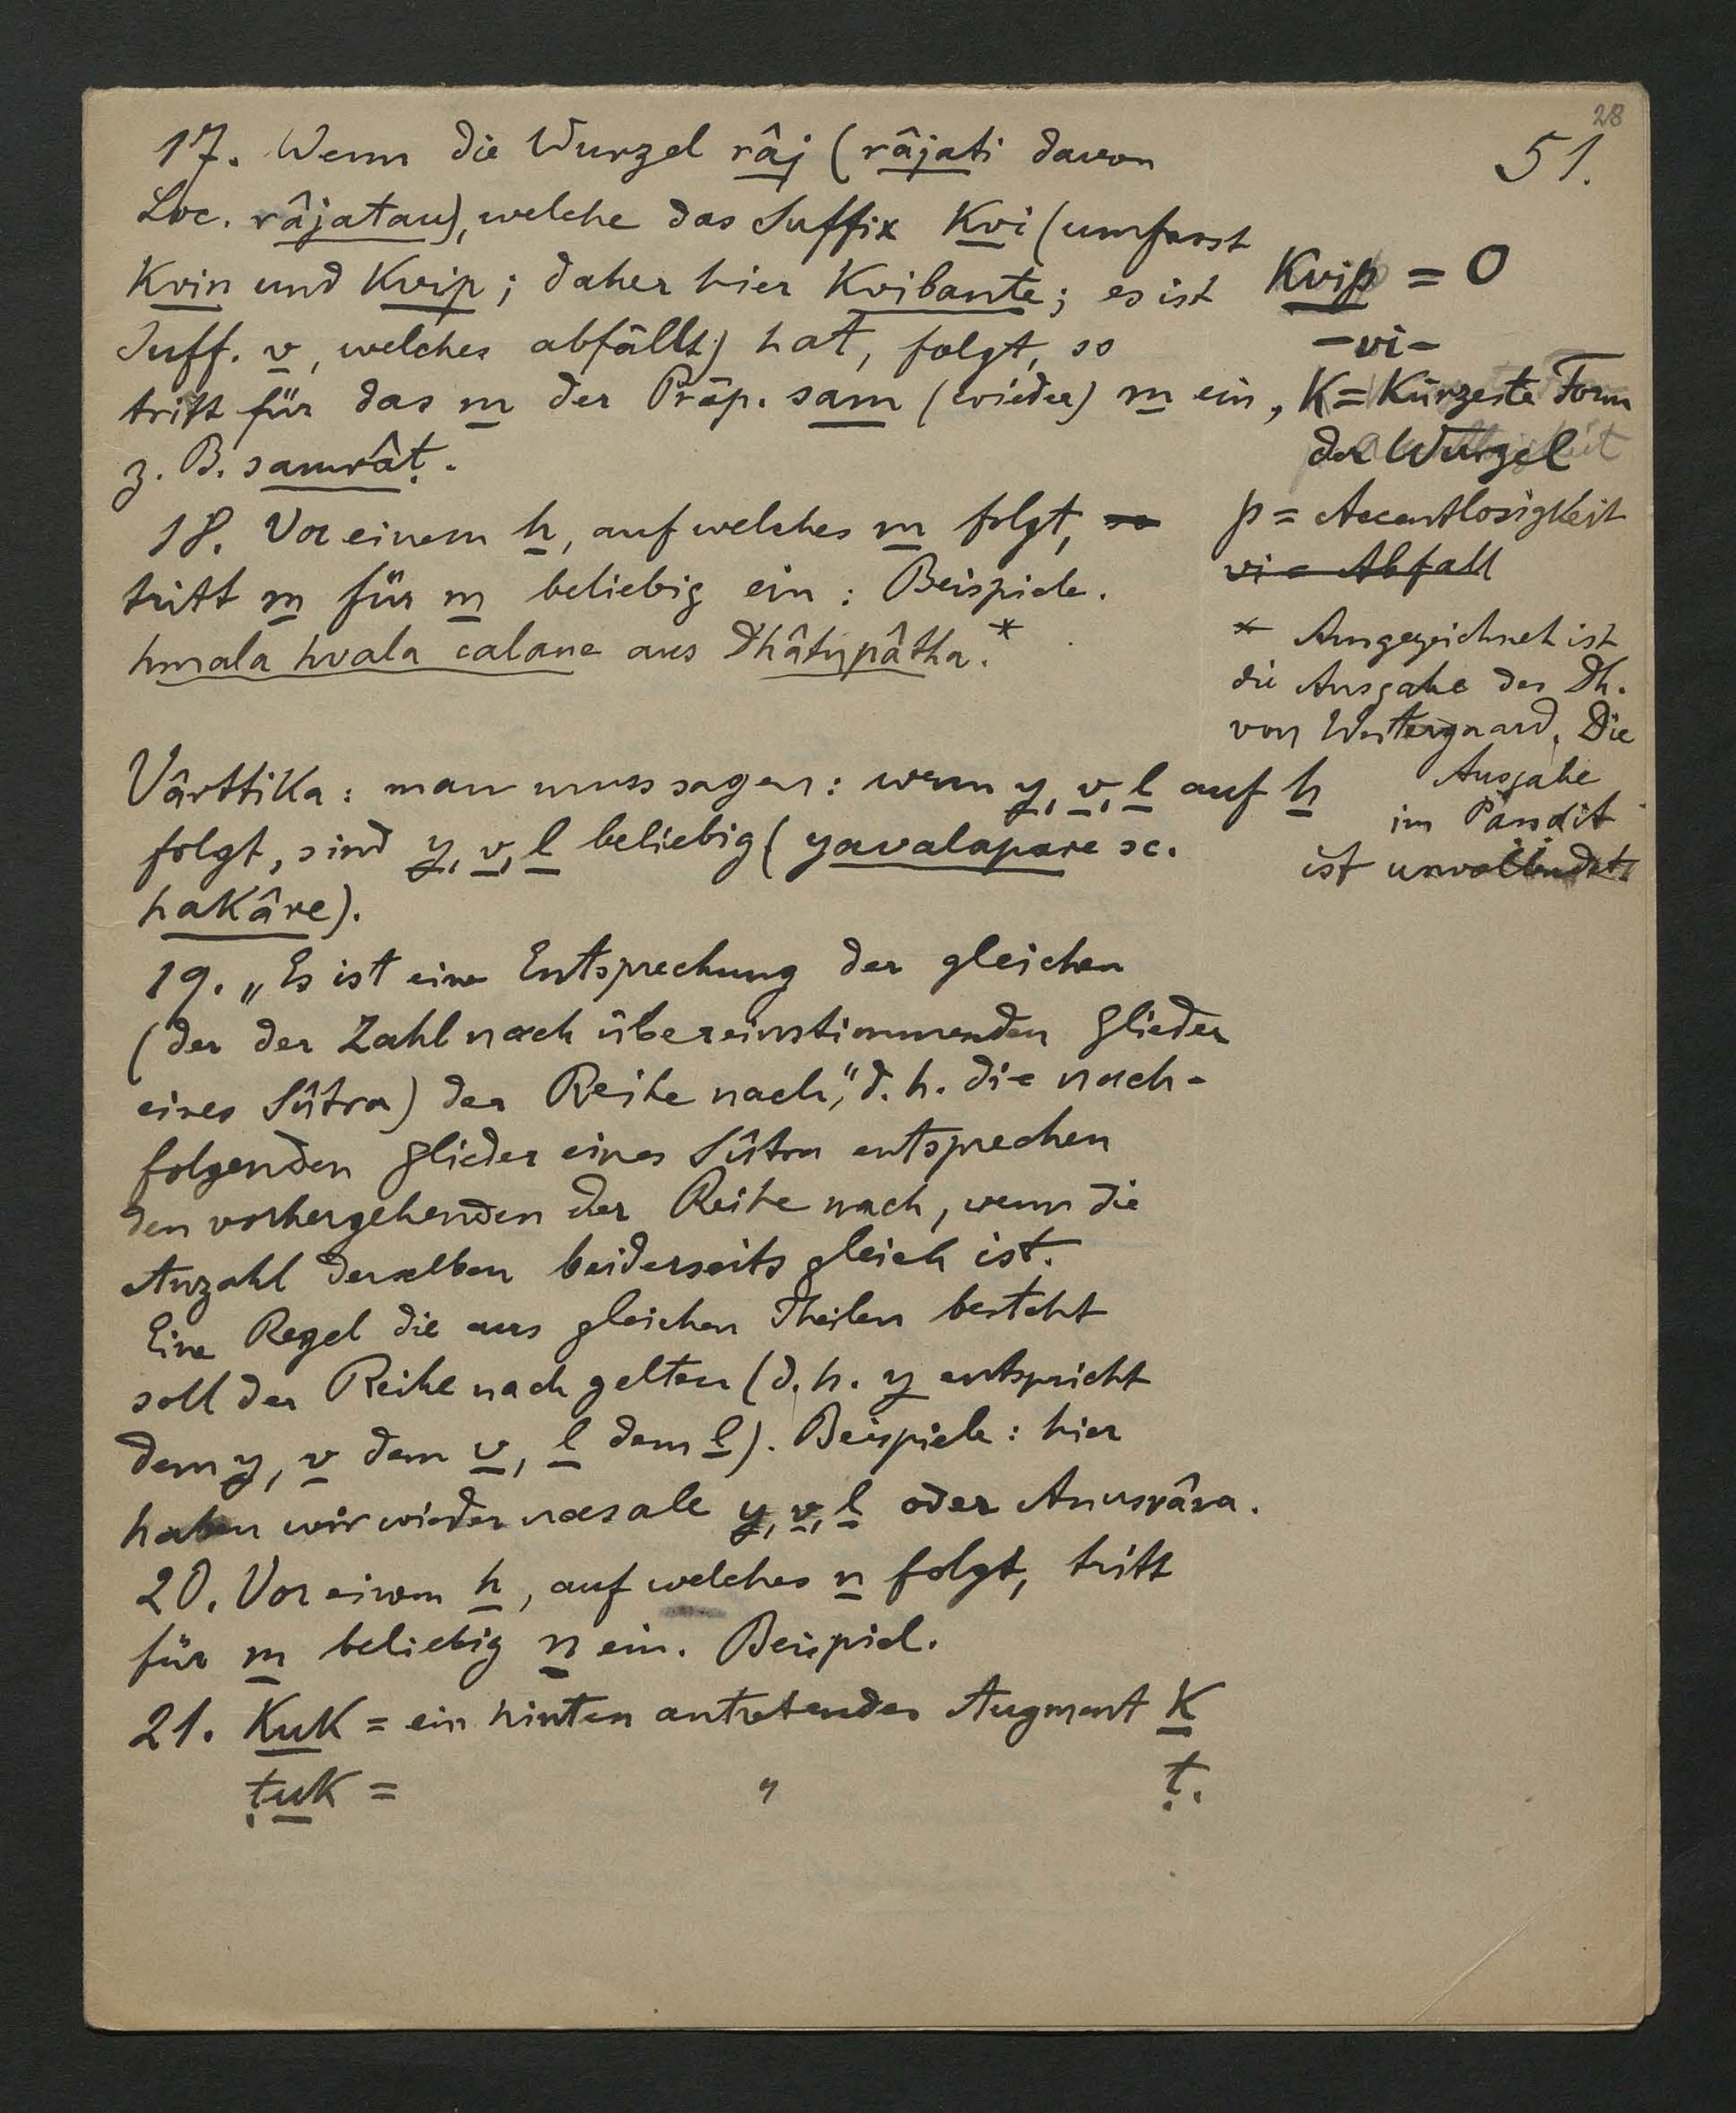 28
51.
17. Wenn die Wurzel râj (râjati davon
Loc. râjatau), welche das Suffix Kvi (umfasst
Kvin und Kvip; daher hier Kvibante; es ist
Suff. v, welches abfällt) hat, folgt, so
tritt für das m der Präp. sam (wieder) m ein,
z. B. samrâṭ.
18. Vor einem h, auf welches m folgt, so
tritt m für m beliebig ein: Beispiele.
hmala hvala calane aus Dhâtupâtha.*
Vârttika: man muss sagen: wenn y, v, l auf h
folgt, sind y, v, l beliebig (yavalapare sc.
hakâre).
19. „Es ist eine Entsprechung der gleichen
(der der Zahl nach übereinstimmenden Glieder
eines Sûtra) der Reihe nach", d. h. die nach-
folgenden Glieder eines Sûtra entsprechen
den vorhergehenden der Reihe nach, wenn die
Anzahl derselben beiderseits gleich ist.
Eine Regel die aus gleichen Theilen besteht
soll der Reihe nach gelten (d. h. y entspricht
dem y, v dem v, l dem l). Beispiele: hier
haben wir wieder nasale y, v, l oder Anusvâra.
20. Vor einem h, auf welches n folgt, tritt
für m beliebig n ein. Beispiel.
21. Kuk = ein hinten antretendes Augment K
ṭuk = " ṭ.
Kvip = 0
-vi-
K = Kürzeste Form
der Wurzel
p = Accentlosigkeit
vi = Abfall
* Ausgezeichnet ist
die Ausgabe des Dh.
von Westergaard. Die
Ausgabe
im Pandit
ist unvollendet.